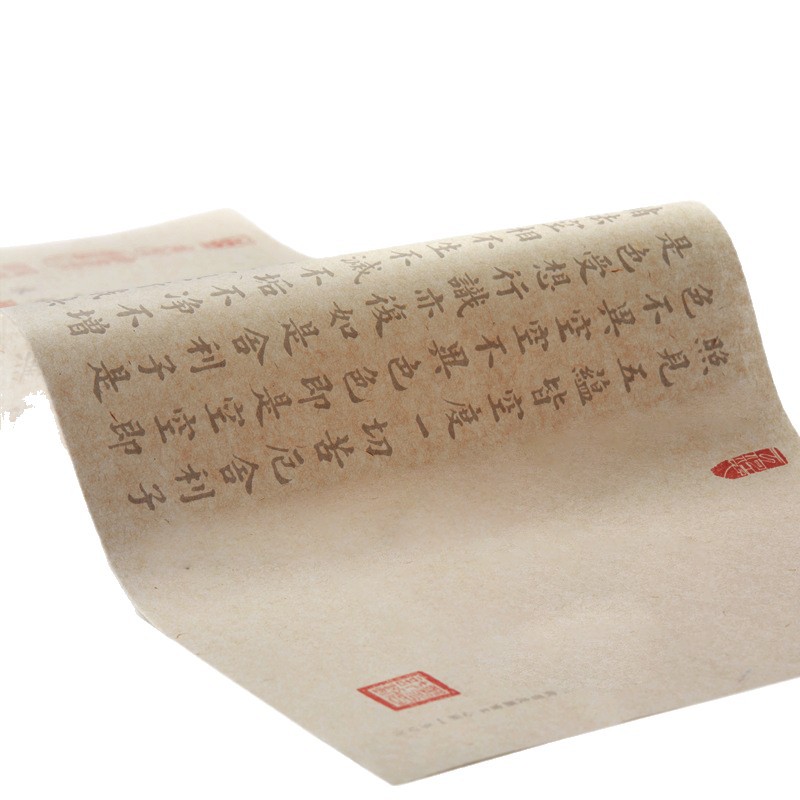 照見五蘊皆空度一切苦厄舍利子
色不異空空不異色色即是空空即
是色受想行識亦復如是舍利子是
諸法空相不生不滅不垢不净不增